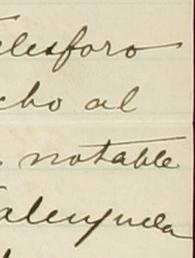 elesforo
cho al
notable
alenzuela